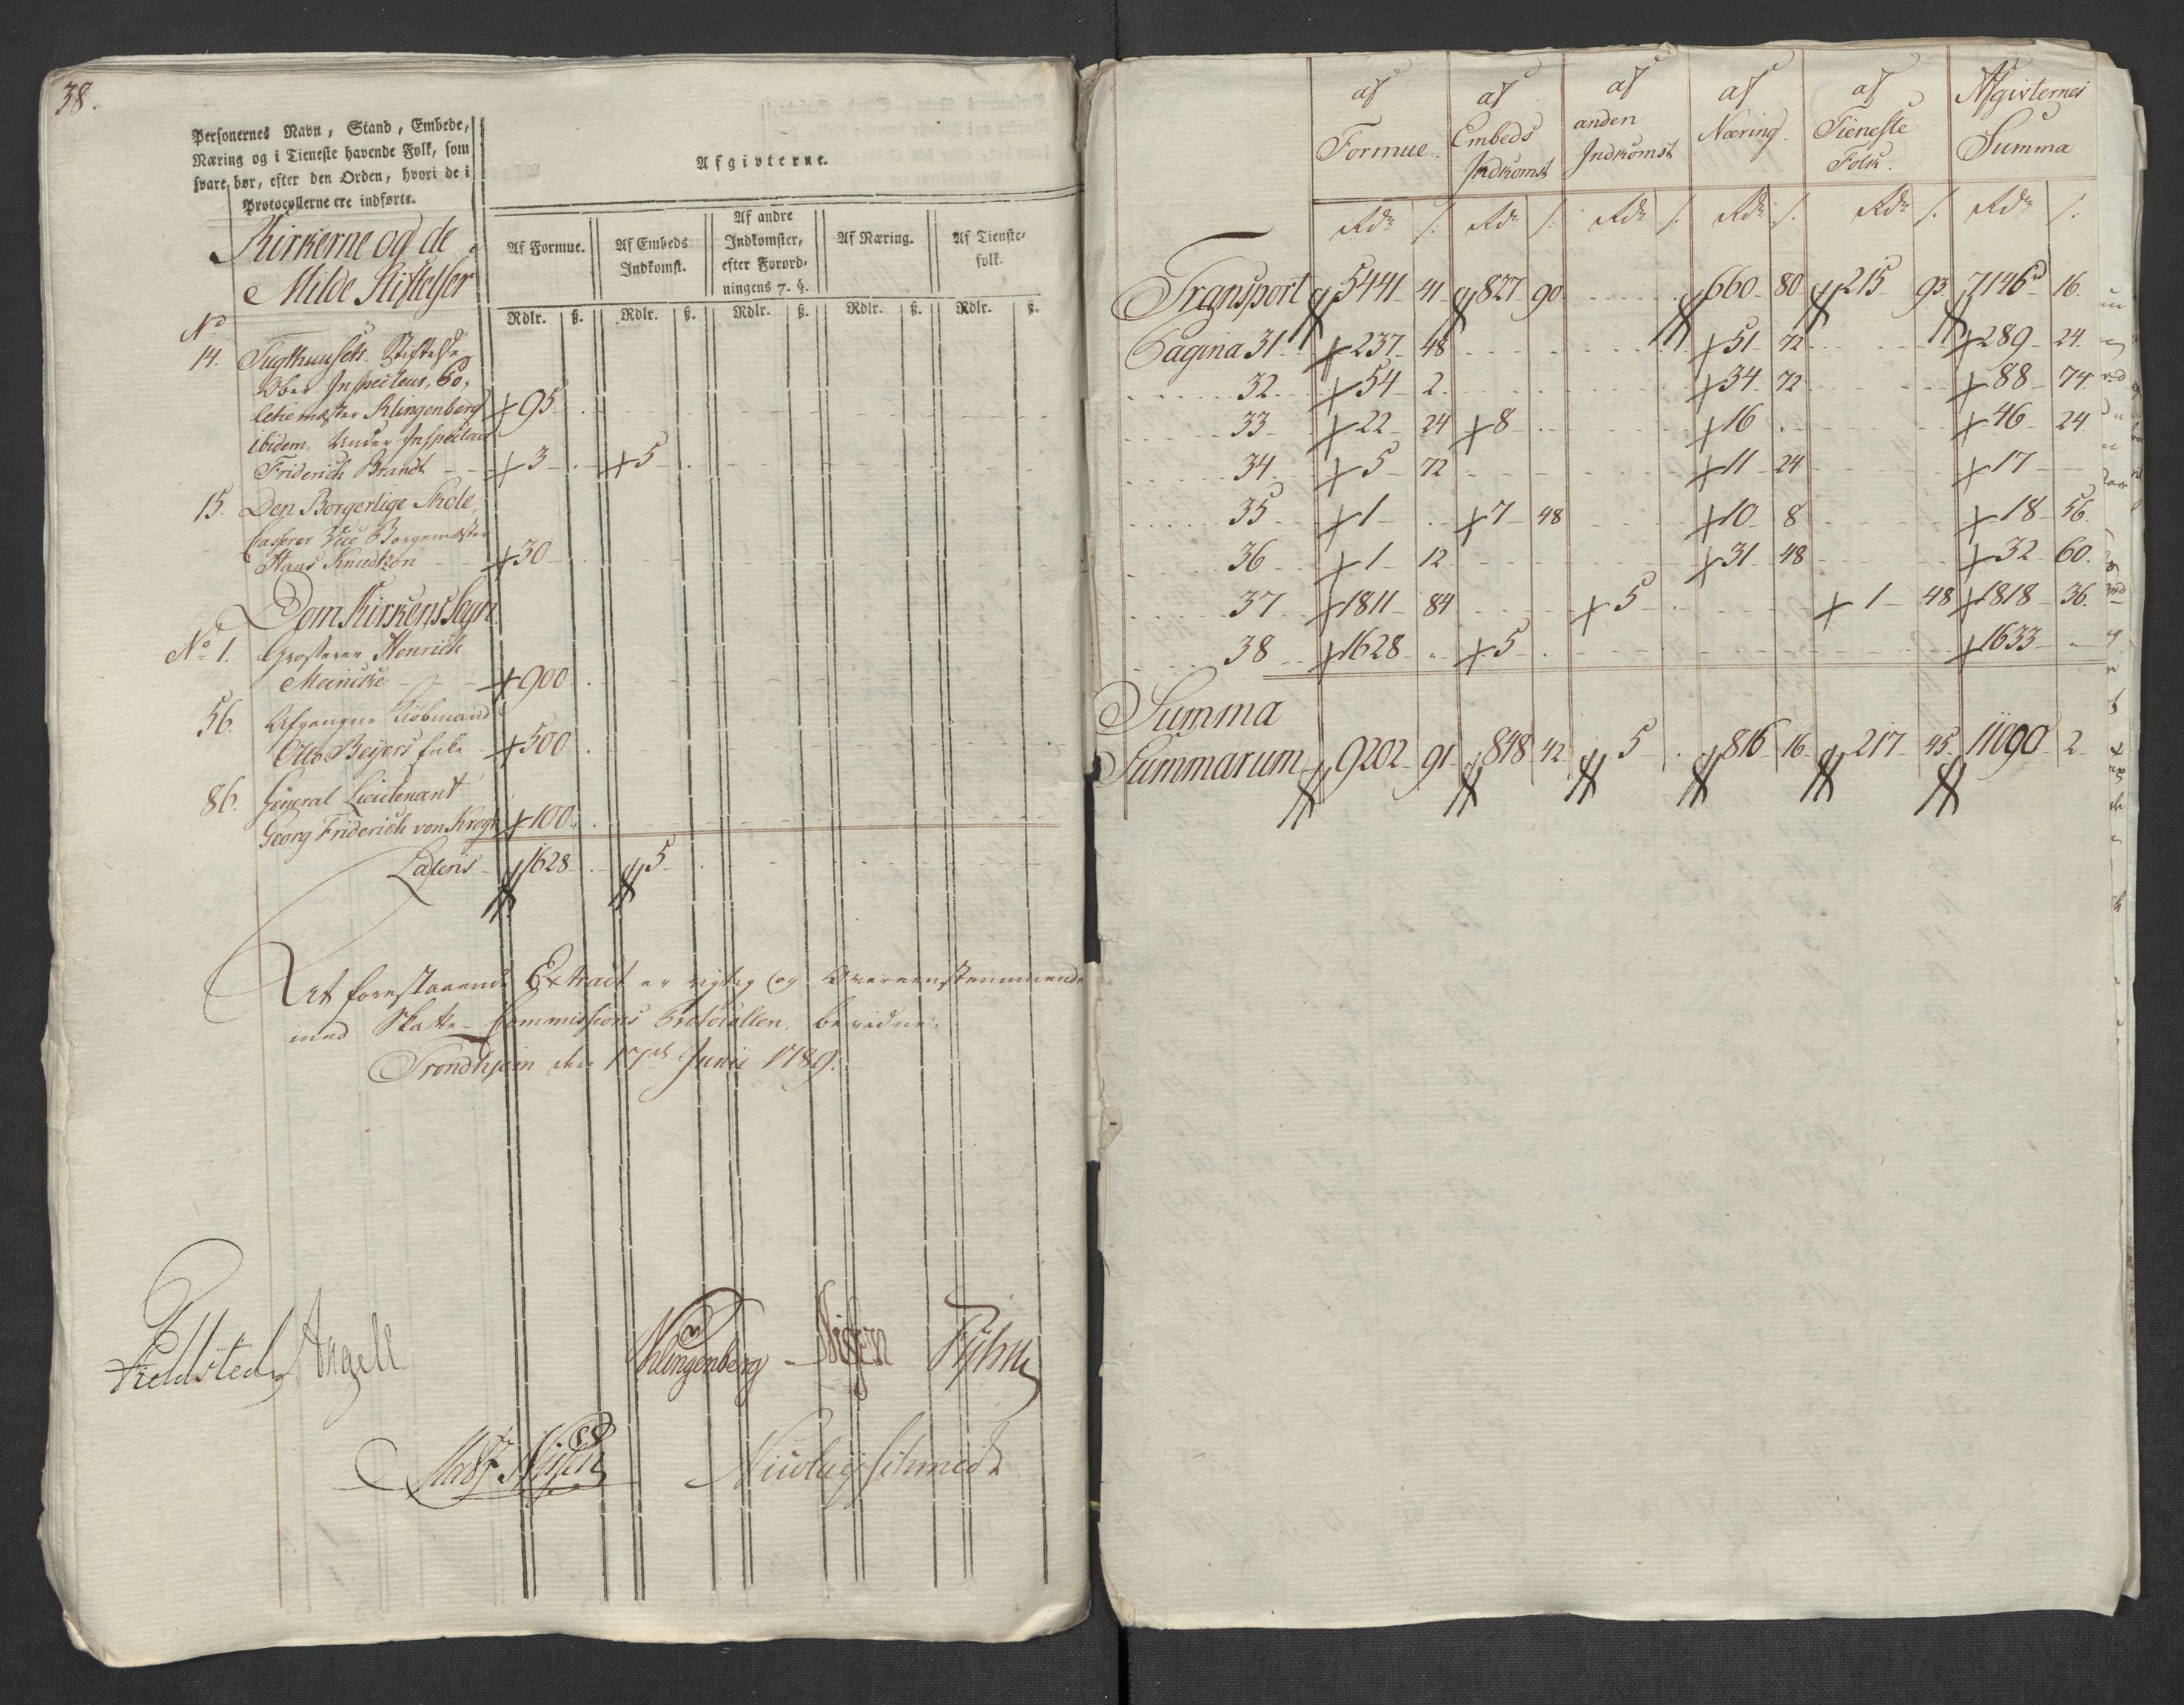 38.
Personernes Navn, Stand, Embede,
Næring og i Tieneste havende Folk, som
svare bør, efter den Orden, hvori de i
Protocollerne ere indførte.
Afgivterne.
Af Formue.
Af Embeds
Indkomst.
Af andre
Indkomster,
efter Forord-
ningens 7. §.
Af Næring.
Af Tieneste-
folk.
Rdlr. ß. Rdlr. ß. Rdlr. ß. Rdlr. ß. Rdlr. ß.
Kirkerne og de
Milde Stiftelser
No
14. Tugthuusets Stiftelse
Ober Inspecteur, Po-
litiemester Klingenberg 95 .
ibidem, Under Inspecteur
Friderich Brandt 3 . 5 .
15. Den Borgerlige Skole,
Casserer Vice Borgemester
Hans Knudtzon 30 .
Dom Kirkens Sogn
No 1. Grosserer Henrich
Meincke 900 .
56. Afgangne Kiöbmand
Otto Beyers Enke 500 .
86. General Lieutenant
Georg Friderich von Krogh 100 .
Lateris 1628 . 5 .
At forestaaende Extract er rigtig og Overeenstemmende
med Skatte-Commissions Protocollen, bevidne.
Trondhjem den 17de Junii 1789.
Fieldsted Angell Klingenberg Nissen
Nicolay Schmidt
af
Formue.
af
Embeds
Indkomst
af
anden
Indkomst
af
Næring.
af
Tieneste
Folk.
Afgivternes
Summa
Rdr ß. Rdr ß. Rdr ß. Rdr ß. Rdr ß. Rdr ß.
Transport 5441 41 827 90 660 80 215 93 7146 rd 16.
Pagina 31. 237 48 51 72 289 24.
32. 54 2. 34 72 88 74.
33 22 24 8 . 16 . 46 24
34. 5 72 11 24 17
35 1 . 7 48 10 8 18 56.
36 1 12. 31 48 32 60.
37 1811 84 5 . 1 48 1818 36.
38 1628 . 5 . 1633 .
Summa
Summarum 9202 91 848 42 5 . 816 16 217 45 11090 2